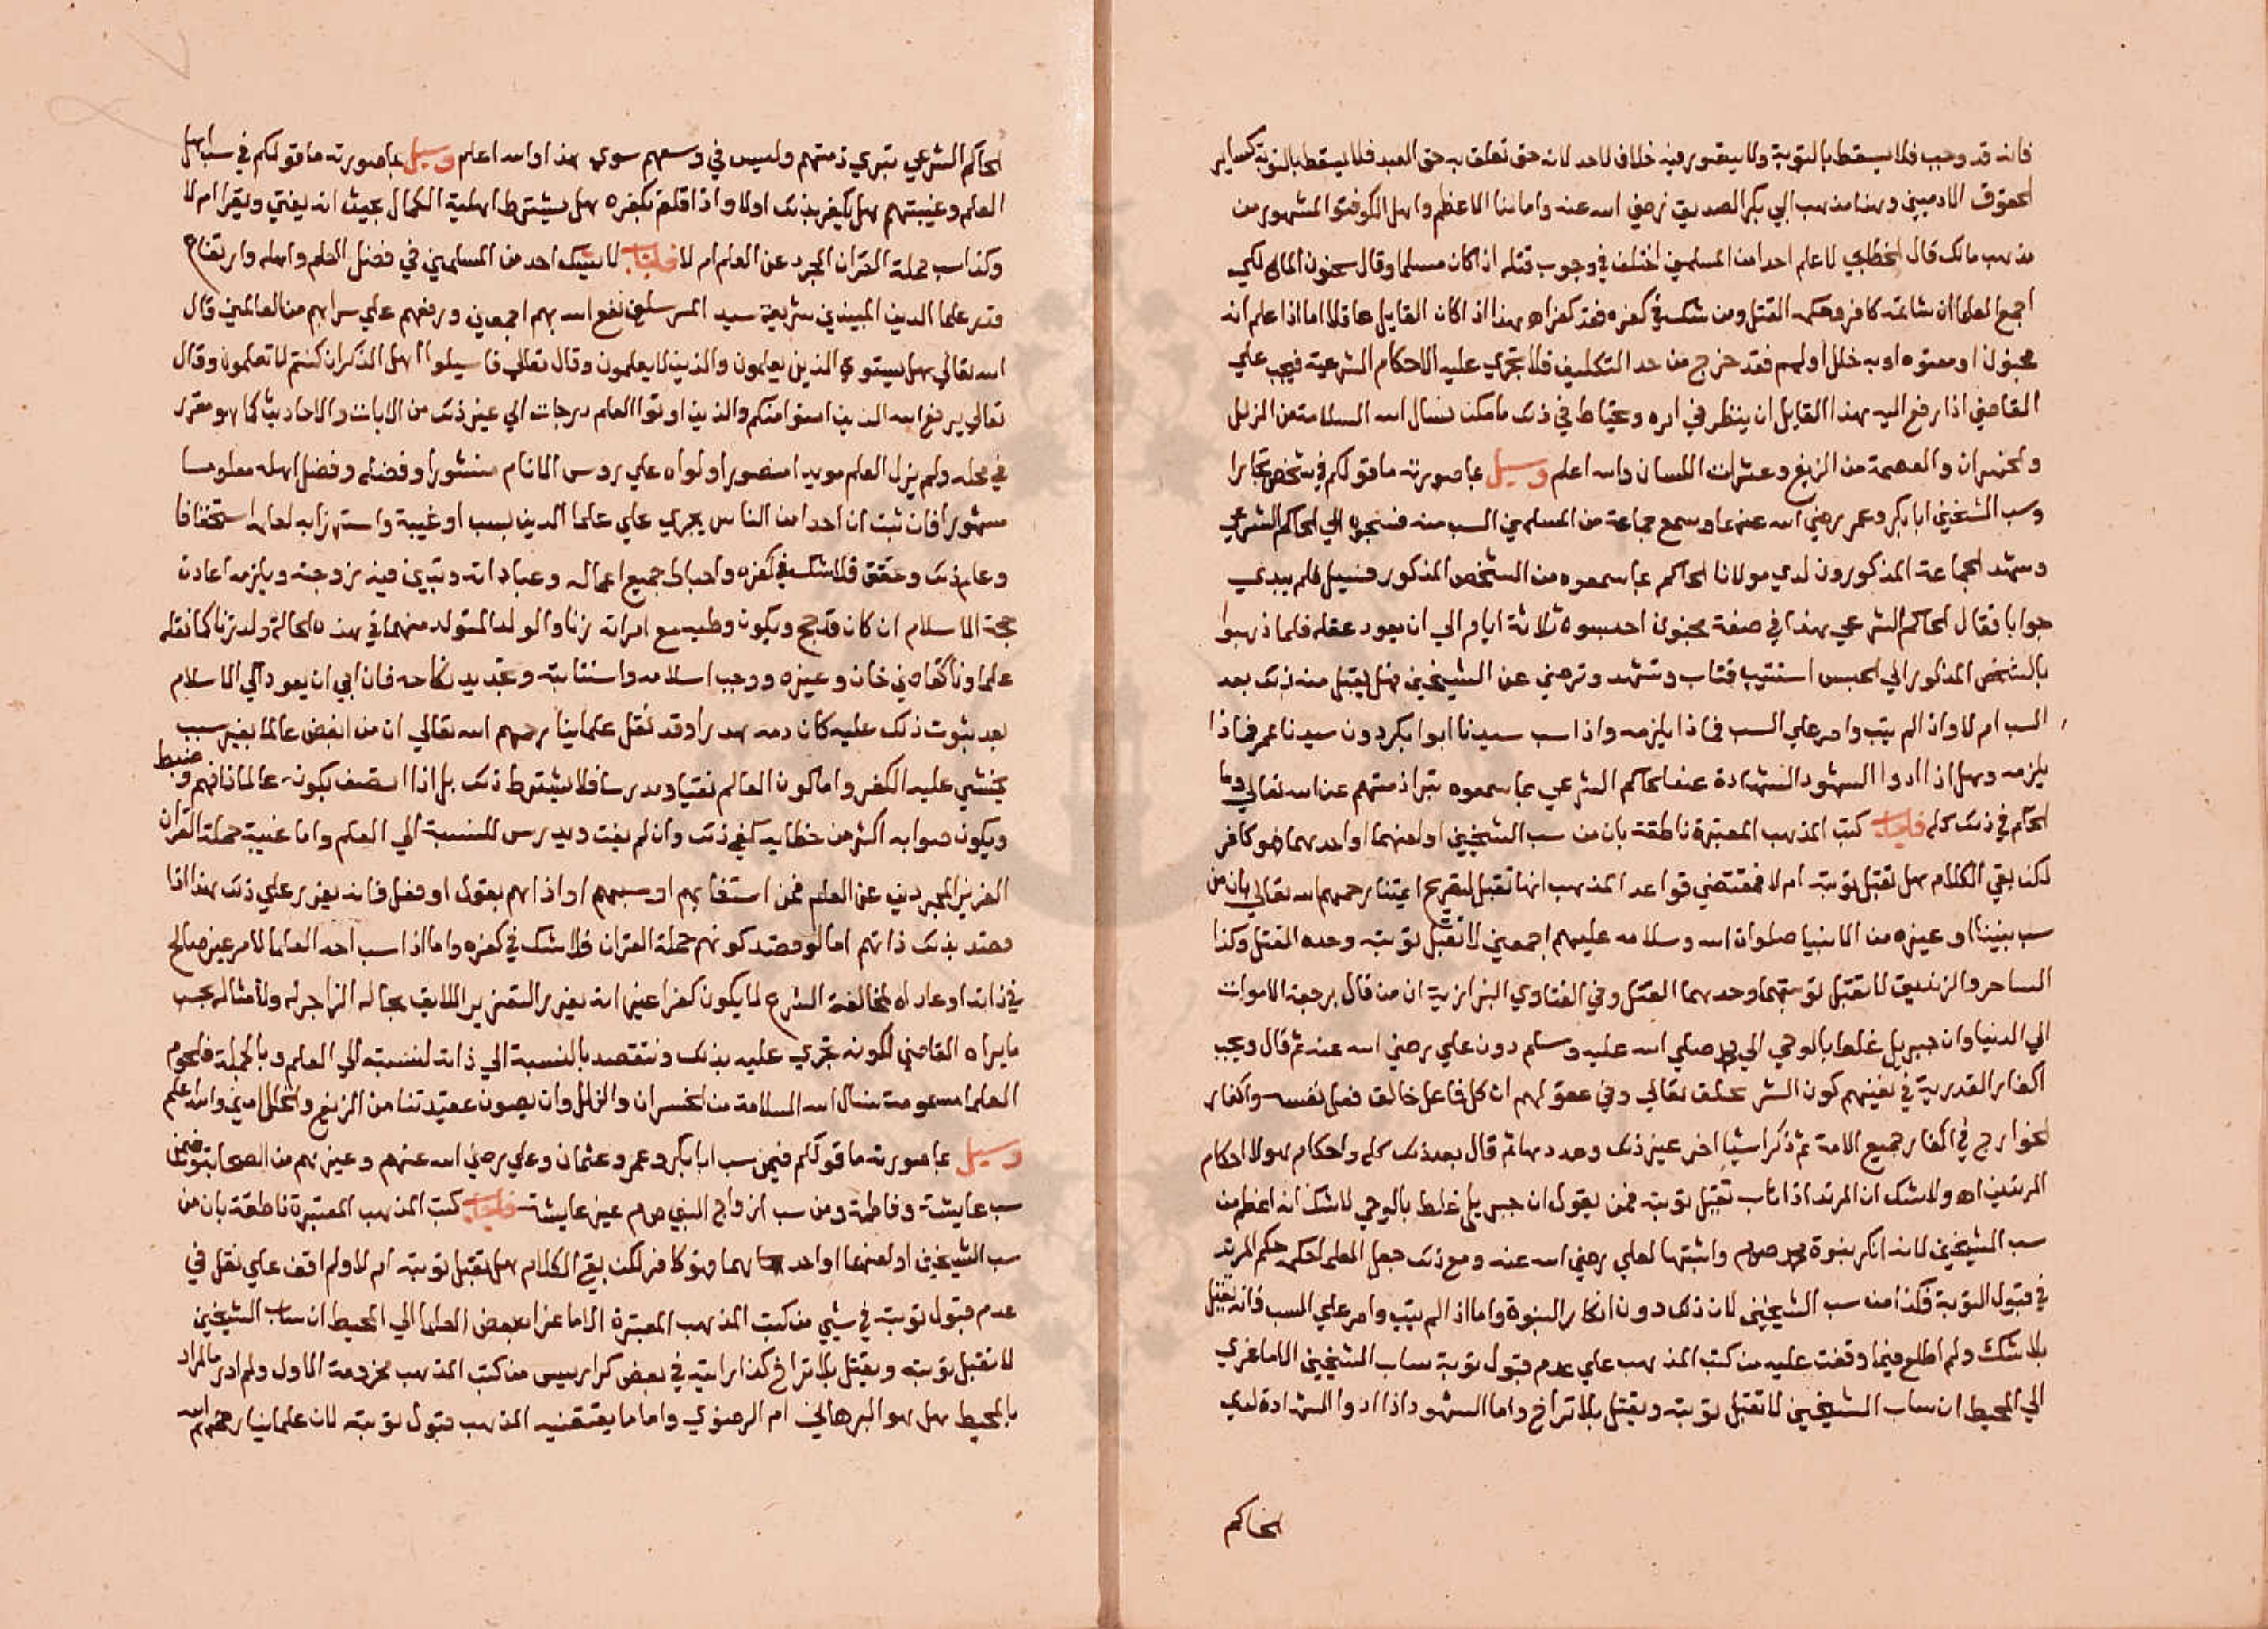 فانه قد وجب فلا يسقط بالتوبة ولا يتصور فيه خلاف لاحد لانه حق تعلق به حق العبد فلا يسقط بالتوبة كساير
الحقوق الادميين وهذا مذهب ابي بكر الصديق رضي الله عنه وامامنا الاعظم واهل الكوفة والمشهور من
مذهب مالك قال الخطابي لا اعلم احدا من المسلمين اختلف في وجوب قتله اذا كان مسلما وقال سحنون المالكي
اجمع العلما ان شاتمه كافر وحكمه القتل ومن شك في كفره فقد كفر اه هذا اذا كان القايل عاقلا اما اذا علم انه
مجنون او معتوه او به خلل او لمم فقد خرج من حد التكليف فلا تجري عليه الاحكام الشرعية فيجب علي
القاضي اذا رفع اليه هذا القايل ان ينظر في امره ويحتاط في ذلك ما امكنه نسال الله السلامة من الزلل
والخسران والعصمة من الزيغ وعثرات اللسان والله اعلم وسيل بما صورته ما قولكم في شخص تجارا
وسب الشيخين ابا بكر وعمر رضي الله عنهما وسمع جماعة من المسلمين السب منه فسحبوه الي الحاكم الشرعي
وشهد الجماعة المذكورون لدي مولانا الحاكم بما سمعوه من الشخص المذكور فسيل فلم يبدي
جوابا فقال الحاكم الشرعي هذا في صفة مجنون احبسوه ثلاثة ايام الي ان يعود عقله فلما ذهبوا
بالشخص المذكور الي الحبس استتيب فتاب وتشهد وترضي عن الشيخين فهل يقبل منه ذلك بعد
السب ام لا واذا لم يتب وامر علي السب فماذا يلزمه واذا سب سيدنا ابوا بكر دون سيدنا عمر فماذا
يلزمه وهل اذا ادوا الشهود الشهادة عند الحاكم الشرعي بما سمعوه تبرا ذمتهم عند الله تعالي وما
الحكم في ذلك كله فاجاب كتب المذهب المعتبرة ناطقة بان من سب الشيخين او لعنهما او احدهما فهو كافر
لكن بقي الكلام هل تقبل توبته ام لا فمقتضي قواعد المذهب انها تقبل لتصريح ايمتنا رحمهم الله تعالي بان من
سب نبينا او غيره من الانبيا صلوات الله وسلامه عليهم اجمعين لا تقبل توبته وحده القتل وكذا
الساحر والزنديق لا تقبل توبتهما وحدهما القتل وفي الفتاوي البزازية ان من قال برجعة الاموات
الي الدنيا وان جبريل غلط بالوحي الي محمد صلي الله عليه وسلم دون علي رضي الله عنه ثم قال ويجب
اكفار القدرية في نفيهم كون الشر بخلق تعالي وفي دعوتهم ان كل فاعل خالق فعل نفسه واكفار
الخوارج في اكفار جميع الامة ثم ذكر اشيا اخر غير ذلك وعددها ثم قال بعد ذلك كله واحكام هولا احكام
المرتدين اه ولا شك ان المرتد اذا تاب تقبل توبته فمن يقول ان جبريل غلط بالوحي لا شك انه اعظم من
سب الشيخين لانه انكر نبوة محمد صلعم واثبتها لعلي رضي الله عنه ومع ذلك جعل العلما حكمه حكم المرتد
في قبول التوبة فكذا من سب الشيخين لان ذلك دون انكار النبوة واما اذا لم يتب وامر علي السب فانه يقتل
بلا شك ولم اطلع فيما وقفت عليه من كتب المذهب علي عدم قبول توبة ساب الشيخين الا ما عزي
الي المحيط ان ساب الشيخين لا تقبل توبته ويقتل بلا تراخ واما الشهود اذا ادوا الشهادة لدي
الحاكم
الحاكم الشرعي تبري ذمتهم وليس في وسعهم سوي هذا والله اعلم وسيل بما صورته ما قولكم في سب اهل
العلم وغيبتهم هل يكفر بذلك اولا واذا قلتم بكفره هل يشترط اهلية الكمال بحيث انه يفتي ويقرا ام لا
وكذا سب حملة القران المجرد عن العلم ام لا فاجاب لا يشك احد من المسلمين في فضل العلم واهله وارتفاع
قدر علما الدين المبينين شريعة سيد المرسلين نفع الله بهم اجمعين ورفعهم علي سرايهم من العالمين قال
الله تعالي هل يستوي الذين يعلمون والذين لا يعلمون وقال تعالي فاسيلوا اهل الذكر ان كنتم لا تعلمون وقال
تعالي يرفع الله الذين امنوا منكم والذين اوتوا العلم درجات الي غير ذلك من الايات والاحاديث كما هو مقرر
في محله ولم يزل العلم مويدا منصورا ولواه علي روس الانام منشورا وفضله وفضل اهله معلوما
مشهورا فان ثبت ان احدا من الناس يجري علي علما الدين بسب او غيبة واستهزابه لعلمه استخفافا
وعلم ذلك وحقق فلا شك في كفره واحباط جميع اعماله وعباداته وتبين منه زوجته ويلزمه اعادت
حجة الاسلام ان كان قد حج ويكون وطيه مع امراته زنا والولد المتولد منهما في هذه الحالة ولد زنا كما نقله
علماونا كقاضي خان وغيره ووجب اسلامه واستتابته وتجديد نكاحه فان ابي ان يعود الي الاسلام
بعد ثبوت ذلك عليه كان دمه هدرا وقد نقل علماينا رحمهم الله تعالي ان من ابغض عالما بغير سبب
يخشي عليه الكفر واما كون العالم مفتيا ومدرسا فلا يشترط ذلك بل اذا اتصف بكونه عالما ذا فهم وضبط
ويكون صوابه اكثر من خطايه كفي ذلك وان لم يفت ويدرس للنسبة الي العلم واما غيبة حملة القران
العزيز المجردين عن العلم فمن استغابهم او سبهم او اذاهم بقول او فعل فانه يعزر علي ذلك هذا اذا
قصد بذلك ذاتهم اما لو قصد كونهم حملة القران فلا شك في كفره واما اذا سب احد العلما لامر غير صالح
في ذاته او عاداه لمخالفة الشرع لا يكون كفرا غير انه يعزر التعزير اللايق بحاله الزاجر له ولامثاله بحسب
ما يراه القاضي لكونه تجري عليه بذلك ونتقصد بالنسبة الي ذاته لنسبته الي العلم وبالجملة فلحوم
العلما مسمومة نسال الله السلامة من الخسران والزلل وان يصون عقيدتنا من الزيغ والخلل امين والله اعلم
وسيل بما صورته ما قولكم فيمن سب ابا بكر وعمر وعثمان وعلي رضي الله عنهم وغيرهم من الصحابة وفيمن
سب عايشة وفاطمة ومن سب ازواج النبي صلعم غير عايشة فاجاب كتب المذهب المعتبرة ناطقة بان من
سب الشيخين او لعنهما او احدهما فهو كافر لكن بقي الكلام هل تقبل توبته ام لا ولم اقف علي نقل في
عدم قبول توبته في شي من كتب المذهب المعتبرة الا ما عزا بعض العلما الي المحيط ان ساب الشيخين
لا تقبل توبته ويقتل بلا تراخ كذا رايته في بعض كراريس من كتب المذهب مخرومة الاول ولم ادر ما المراد
بالمحيط هل هو البرهاني ام الرضوي واما ما يقتضيه المذهب قبول توبته لان علماينا رحمهم الله